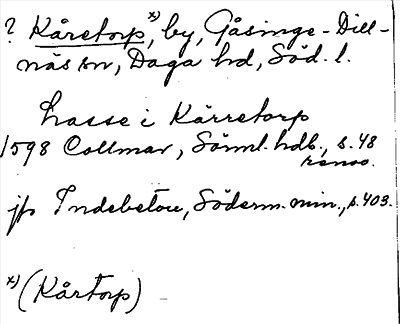 ? Kåretorp x), by, Gåsinge-Dill-
näs sn, Daga hd, Söd. l.
Lasse i Kärretorp
1598 Collmar, Sörml. hdb., s. 48
renov.
jfr Indebetou, Söderm. min., s. 403.
x) (Kårtorp)